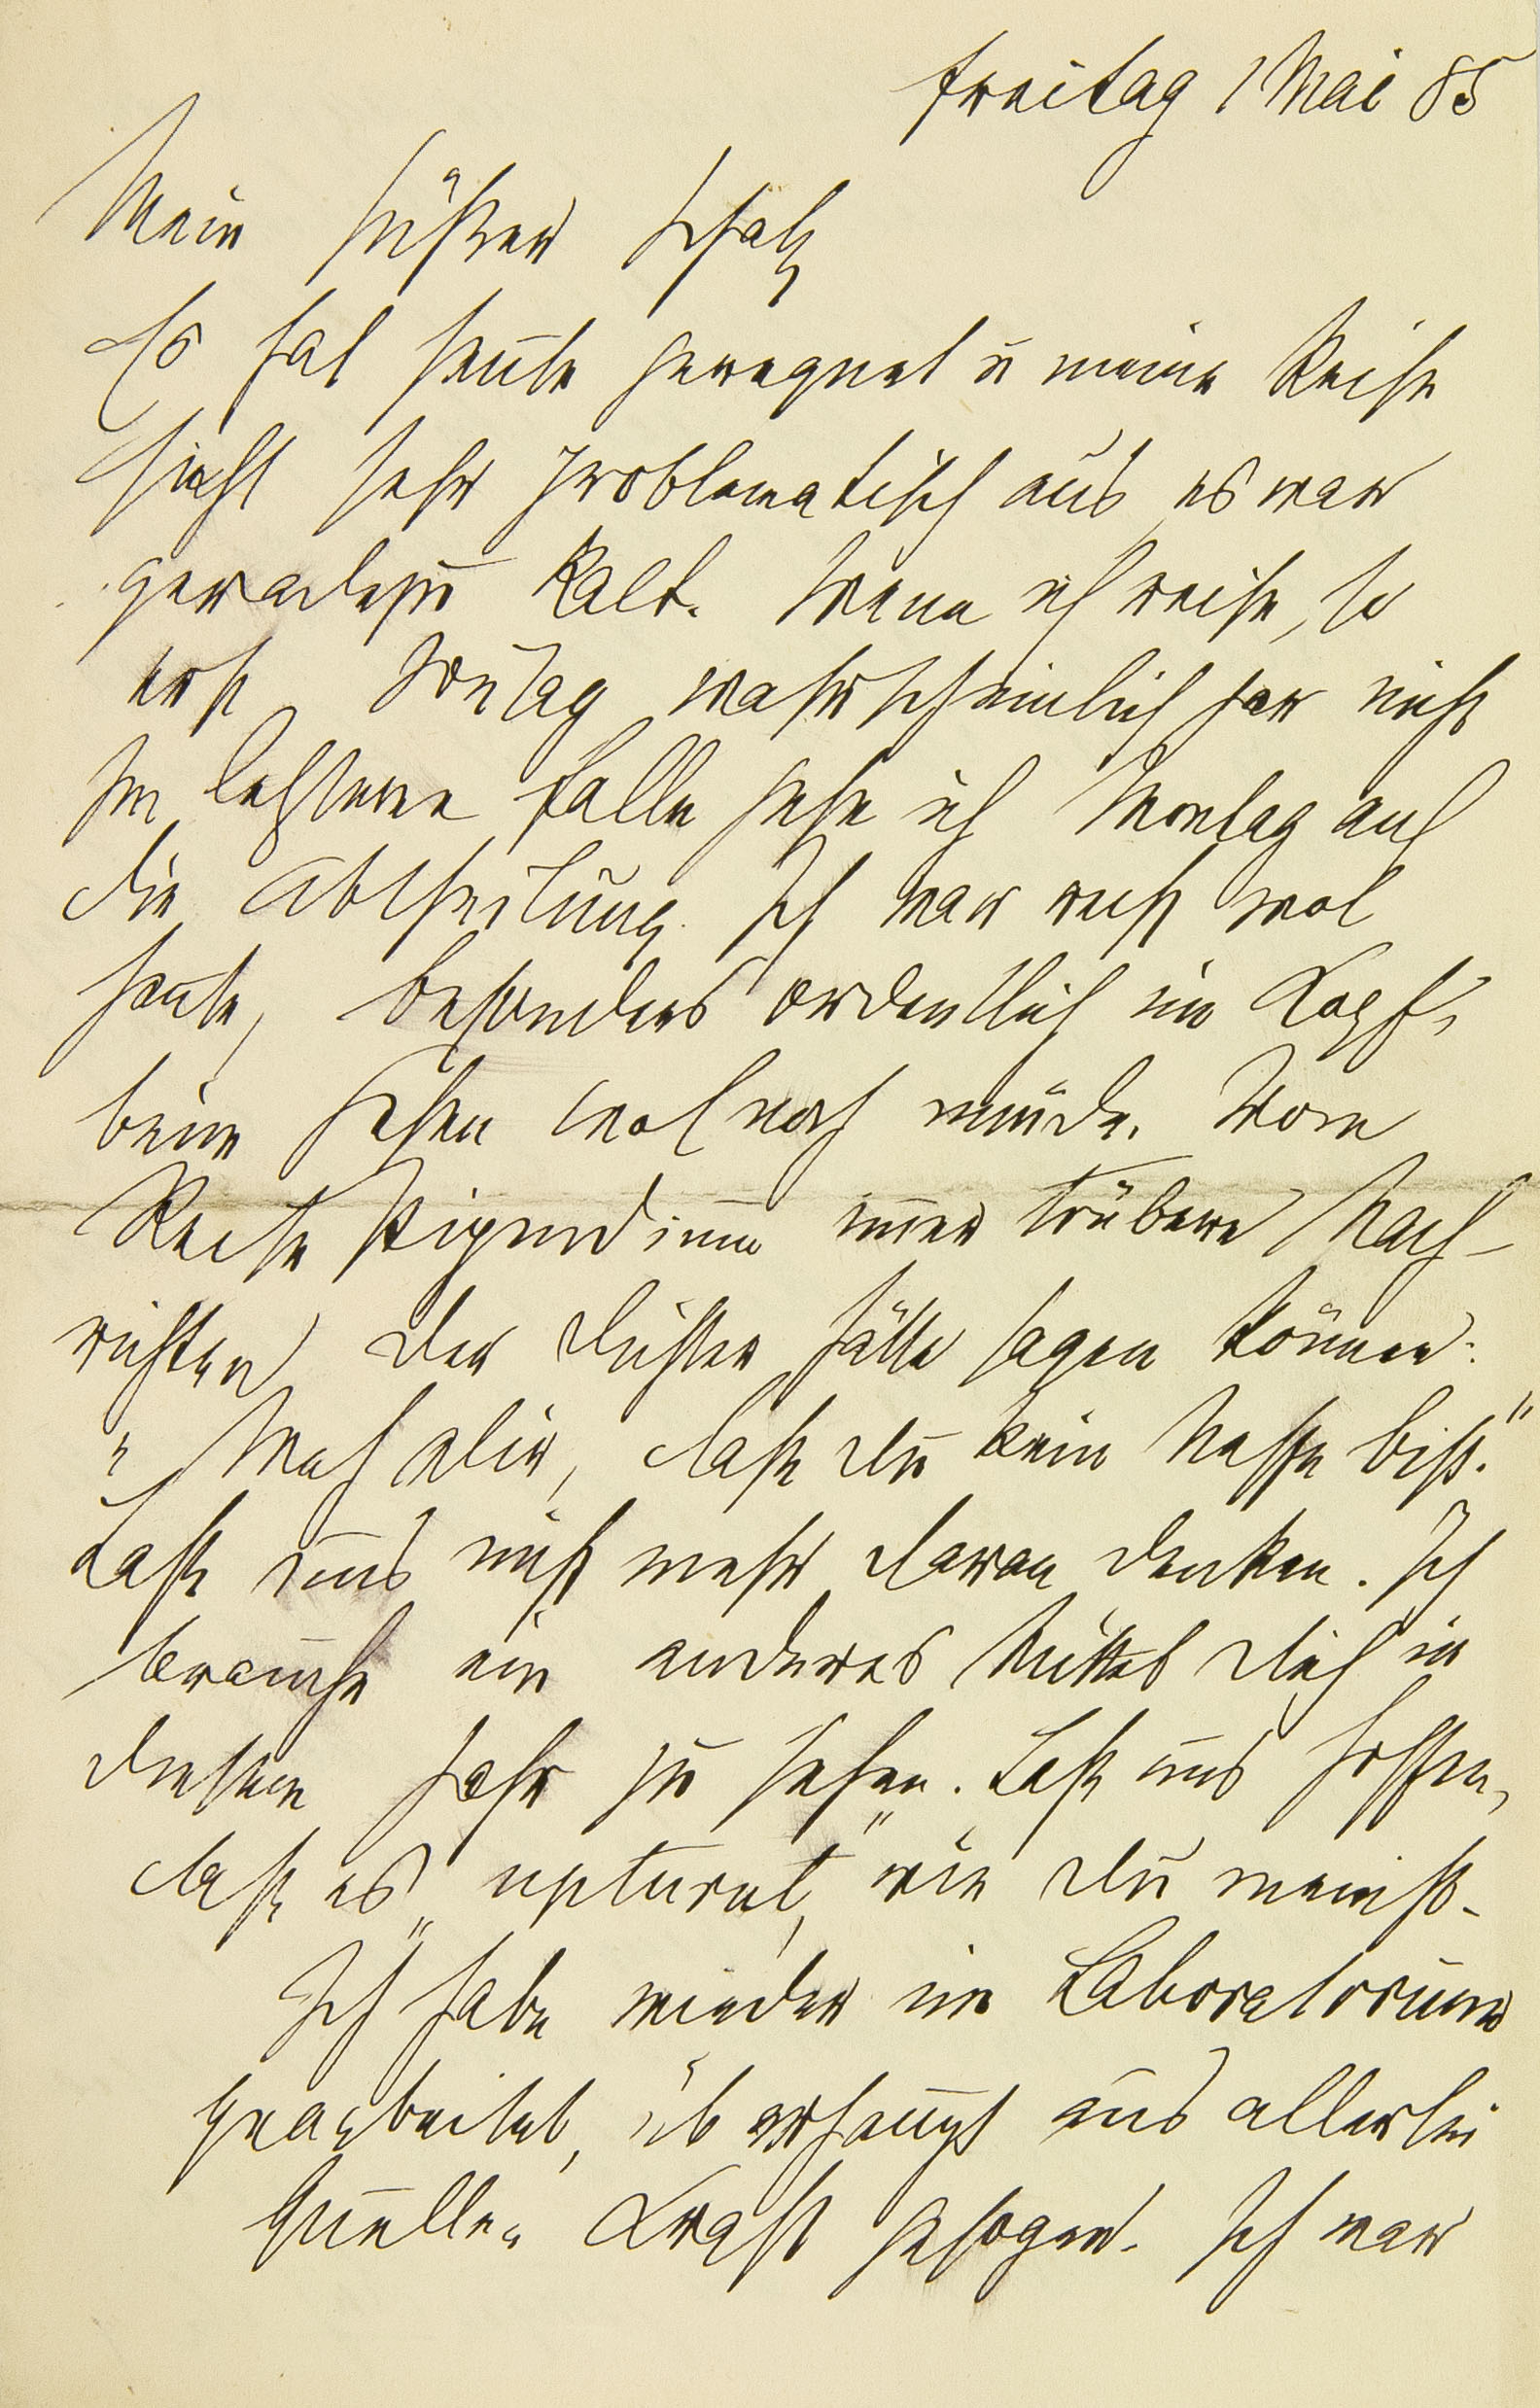 Freitag 1 Mai 85
Mein süßer Schatz
Es hat heute geregnet u meine Reise
sieht sehr problematisch aus, es war
geradezu kalt. Wenn ich reise, so
erst Sontag wahrscheinlich gar nicht
Im letzteren Falle gehe ich Montag auf
die Abtheilung. Ich war recht wol
heute, besonders ordentlich im Kopf,
beim Gehen wol noch müde. Vom
Reise Stipendium immer trübere Nach-
richten der Dichter hätte sagen können:
„Weh dir, daß du kein Neffe bist."
Laß uns nicht mehr daran denken. Ich
brauche ein anderes Mittel dich in
diesem Jahr zu sehen. Laß uns hoffen,
daß es „upturnt," wie du meinst.
Ich habe wieder im Laboratorium
gearbeitet, überhaupt aus allerlei
Quellen Kraft gesogen. Ich war